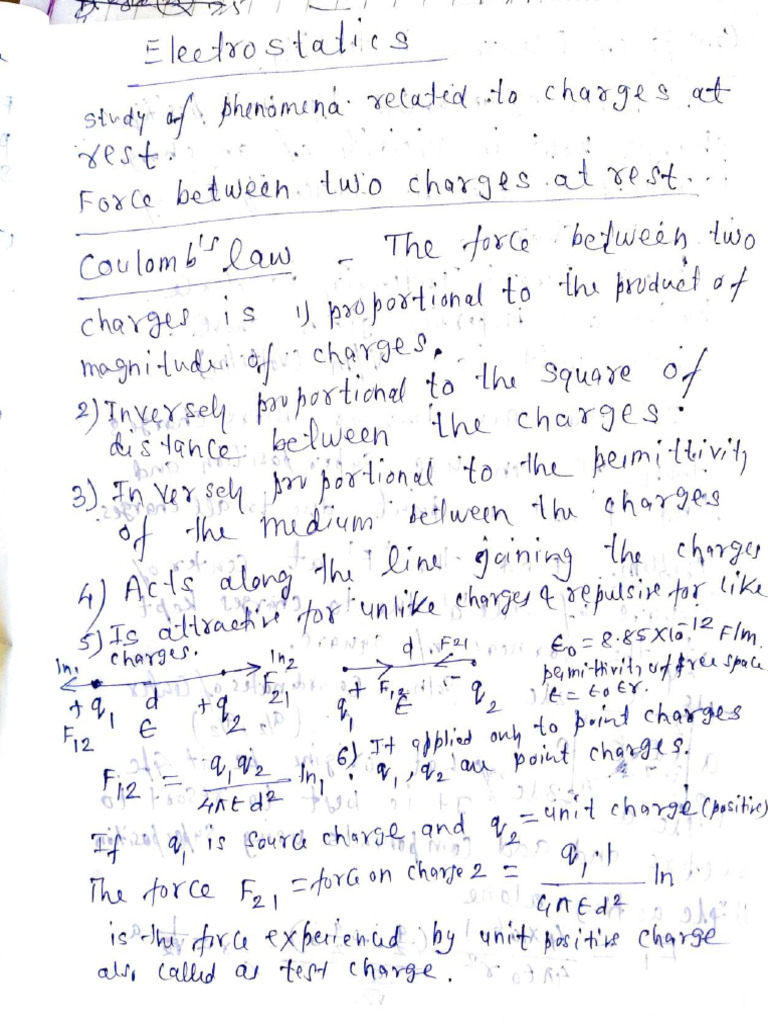 Electrostatics
study of phenomena related to charges at
rest.
Force between two charges at rest.
Coulomb's law - The force between two
charges is 1) proportional to the product of
magnitude of charges.
2) Inversely proportional to the square of
distance between the charges.
3) Inversely proportional to the permittivity
of the medium between the charges
4) Acts along the line joining the charges
5) Is attractive for unlike charges & repulsive for like
charges.
In1 In2 d F21 ε0 = 8.85×10-12 F/m.
+q1 d +q2 F21 + F12 - permittivity of free space
F12 ε q1 ε q2 ε = ε0 εr.
6) It applied only to point charges
q1, q2 are point charges.
F12 = q1q2 / 4πεd² In1
If q1 is source charge and q2 = unit charge (positive)
The force F21 = force on charge 2 = q1·1 / 4πεd² In
is the force experienced by unit positive charge
also called as test charge.